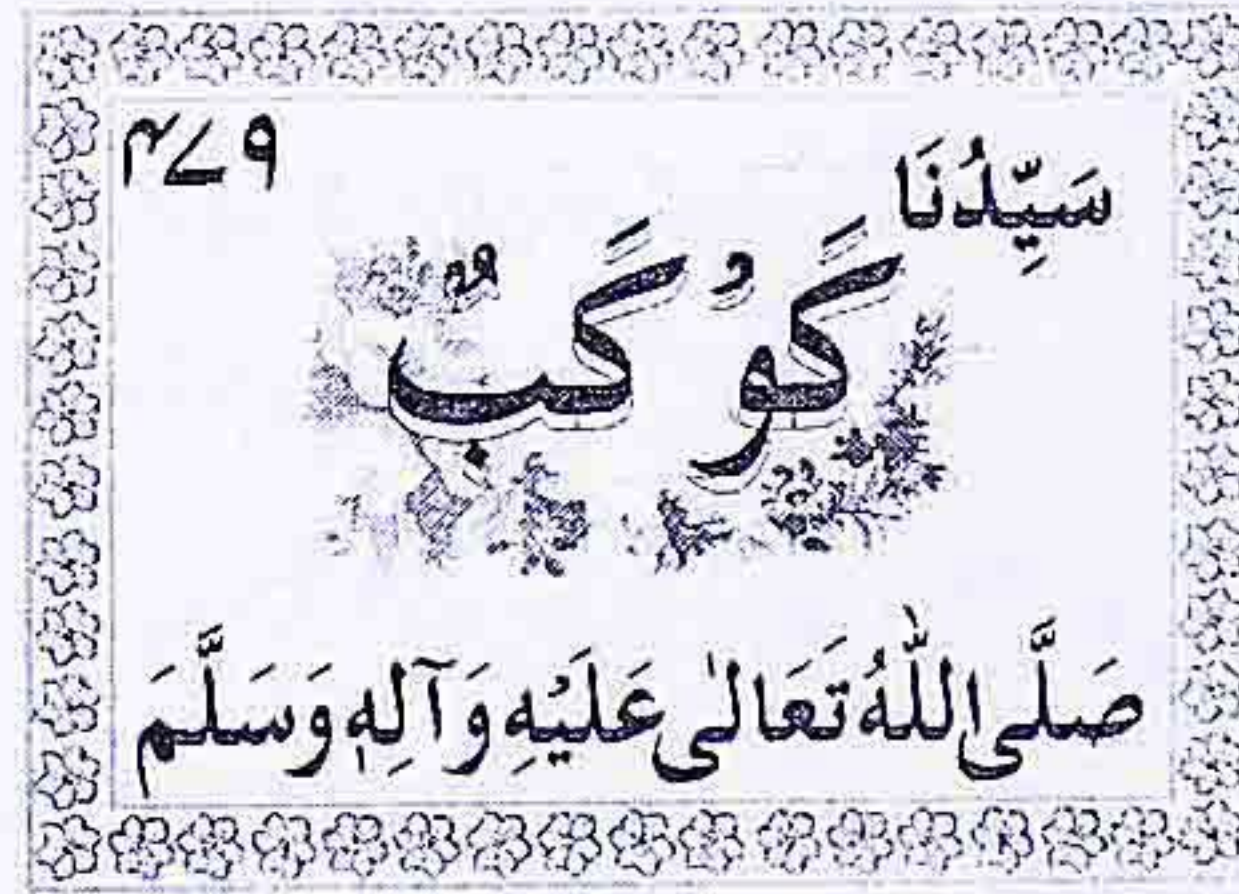 ۴۷۹
سَيِّدُنَا
كَوْكَبٌ
صَلَّى اللّٰهُ تَعَالٰى عَلَيْهِ وَآلِهٖ وَسَلَّمَ